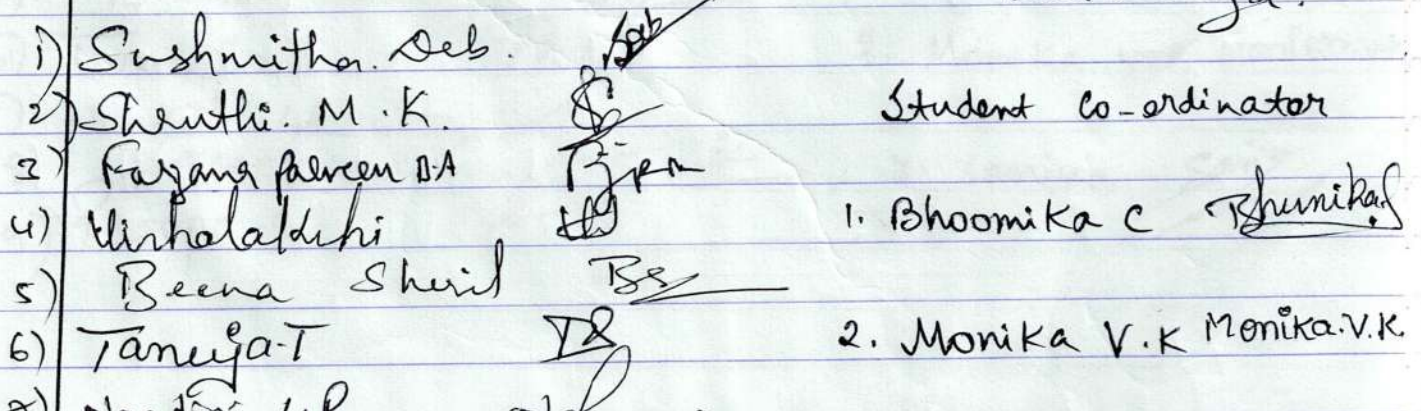 1) Sushmitha. Deb.
2) Shruthi. M. K.
3) Farzana parveen B.A
4) Vishalakshi
5) Beena Sheril Bs
6) Taneija-T
Student Co-ordinator
1. Bhoomika C Bhumika
2. Monika V.K Monika.V.K.